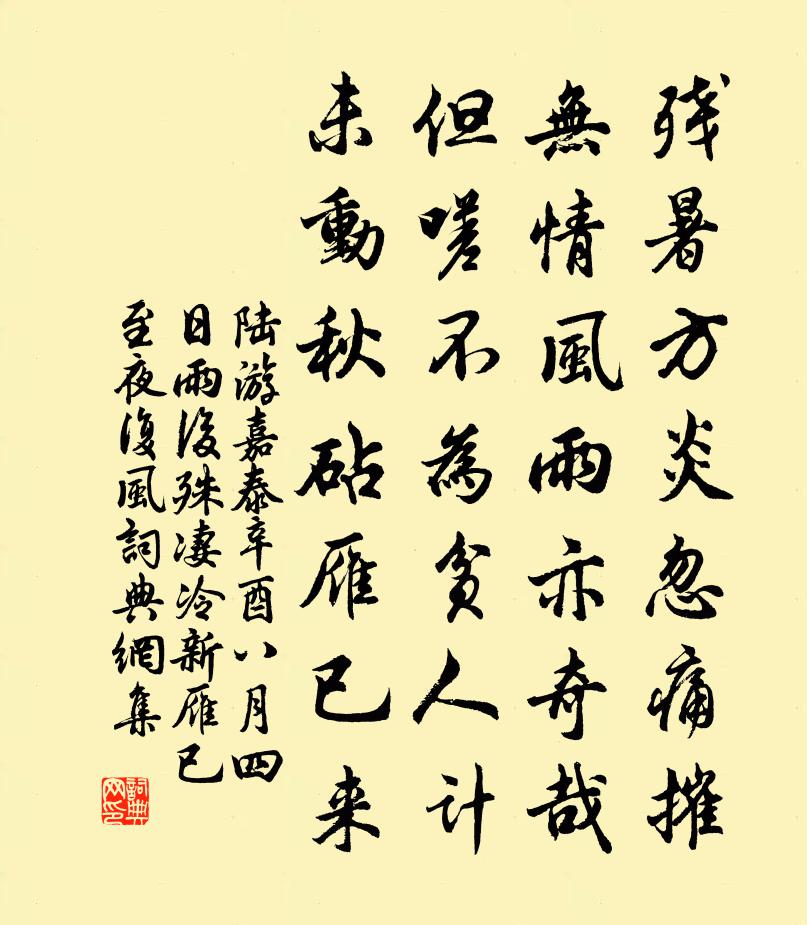 残暑方炎忽痛摧
無情風雨亦奇哉
但嗟不為貧人計
未動秋砧雁已来
陆游嘉泰辛酉八月四
日雨後殊凄冷新雁已
至夜復風詞典網集
詞典网印